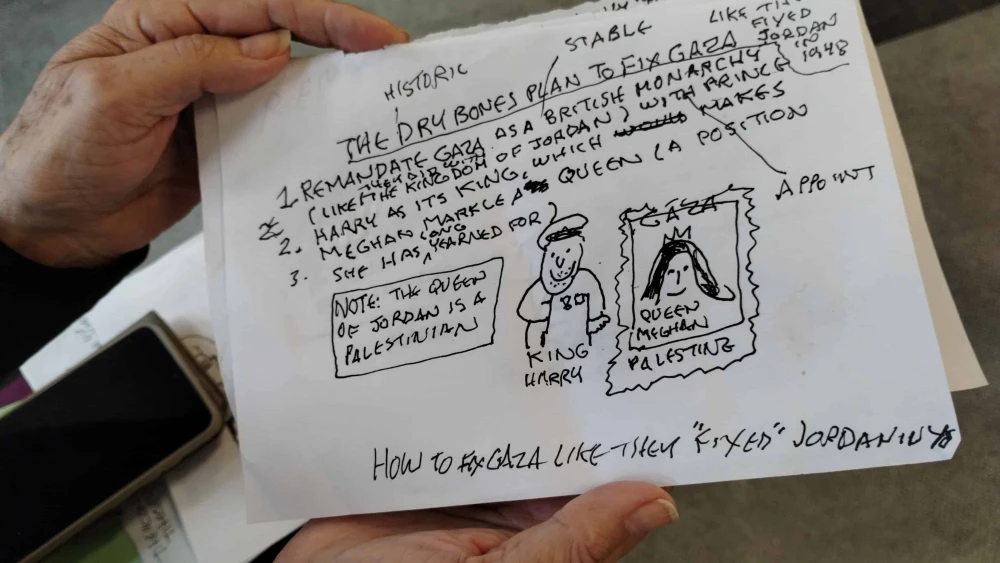 HISTORIC
STABLE
LIKE
FIXED
JORDAN
IN
1948
THE DRY BONES PLAN TO FIX GAZA
1. REMANDATE GAZA AS A BRITISH MONARCHY
THEY DID WITH
(LIKE THE KINGDOM OF JORDAN) WITH PRINCE
HARRY AS ITS KING, WHICH MAKES
2. MEGHAN MARKLE A QUEEN (A POSITION
LONG
3. SHE HAS YEARNED FOR)
APPOINT
NOTE: THE QUEEN
OF JORDAN IS A
PALESTINIAN
KING
HARRY
GAZA
QUEEN
MEGHAN
PALESTINE
HOW TO FIX GAZA LIKE THEY "FIXED" JORDAN IN